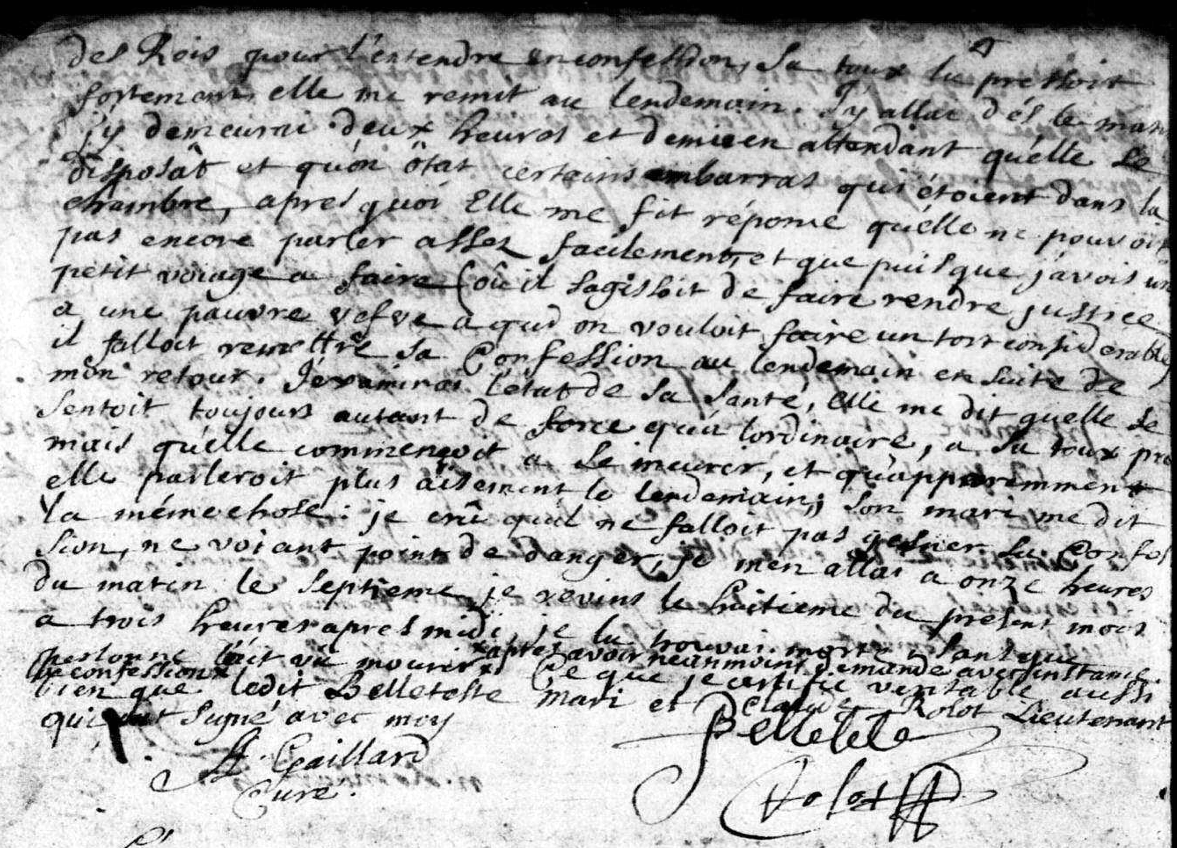 des Rois pour l'entendre en confession, sa toux la pressoit
fortement elle me remit au lendemain. J'y allai dés le matin
j'y demeurai deux heures et demie en attendant qu'elle se
disposât et qu'on ôtat certains embarras qui étoient dans la
chambre, apres quoi Elle me fit réponse qu'elle ne pouvoit
pas encore parler assez facilement, et que puisque j'avois un
petit voiage a faire (où il sagissoit de faire rendre justice
a une pauvre vefve a qui on vouloit faire un tort considerable)
il falloit remettre sa Confession au lendemain en suite de
mon retour. J'examinai l'état de sa santé, Elle me dit quelle se
sentoit toujours autant de force qu'a lordinaire, a sa toux pres
mais qu'elle commençoit a se meurer, et qu'apparemment
elle parleroit plus aisement le lendemain; son mari me dit
la même chose: je crû quil ne falloit pas gesner sa Confes
sion, ne voiant point de danger, je men allai a onze heures
du matin le septieme je revins le huitieme du present mois
a trois heures apres midi je la trouvai morte sans que
personne l'ait vû mourir apres avoir neanmoins demandé avec instance
la confession Ce que je certifie veritable aussi
bien que ledit Belleteste mari et Claude Rolot Lieutenant
qui ont signé avec moy
Gaillard
Curé.
Belletete
Rolot